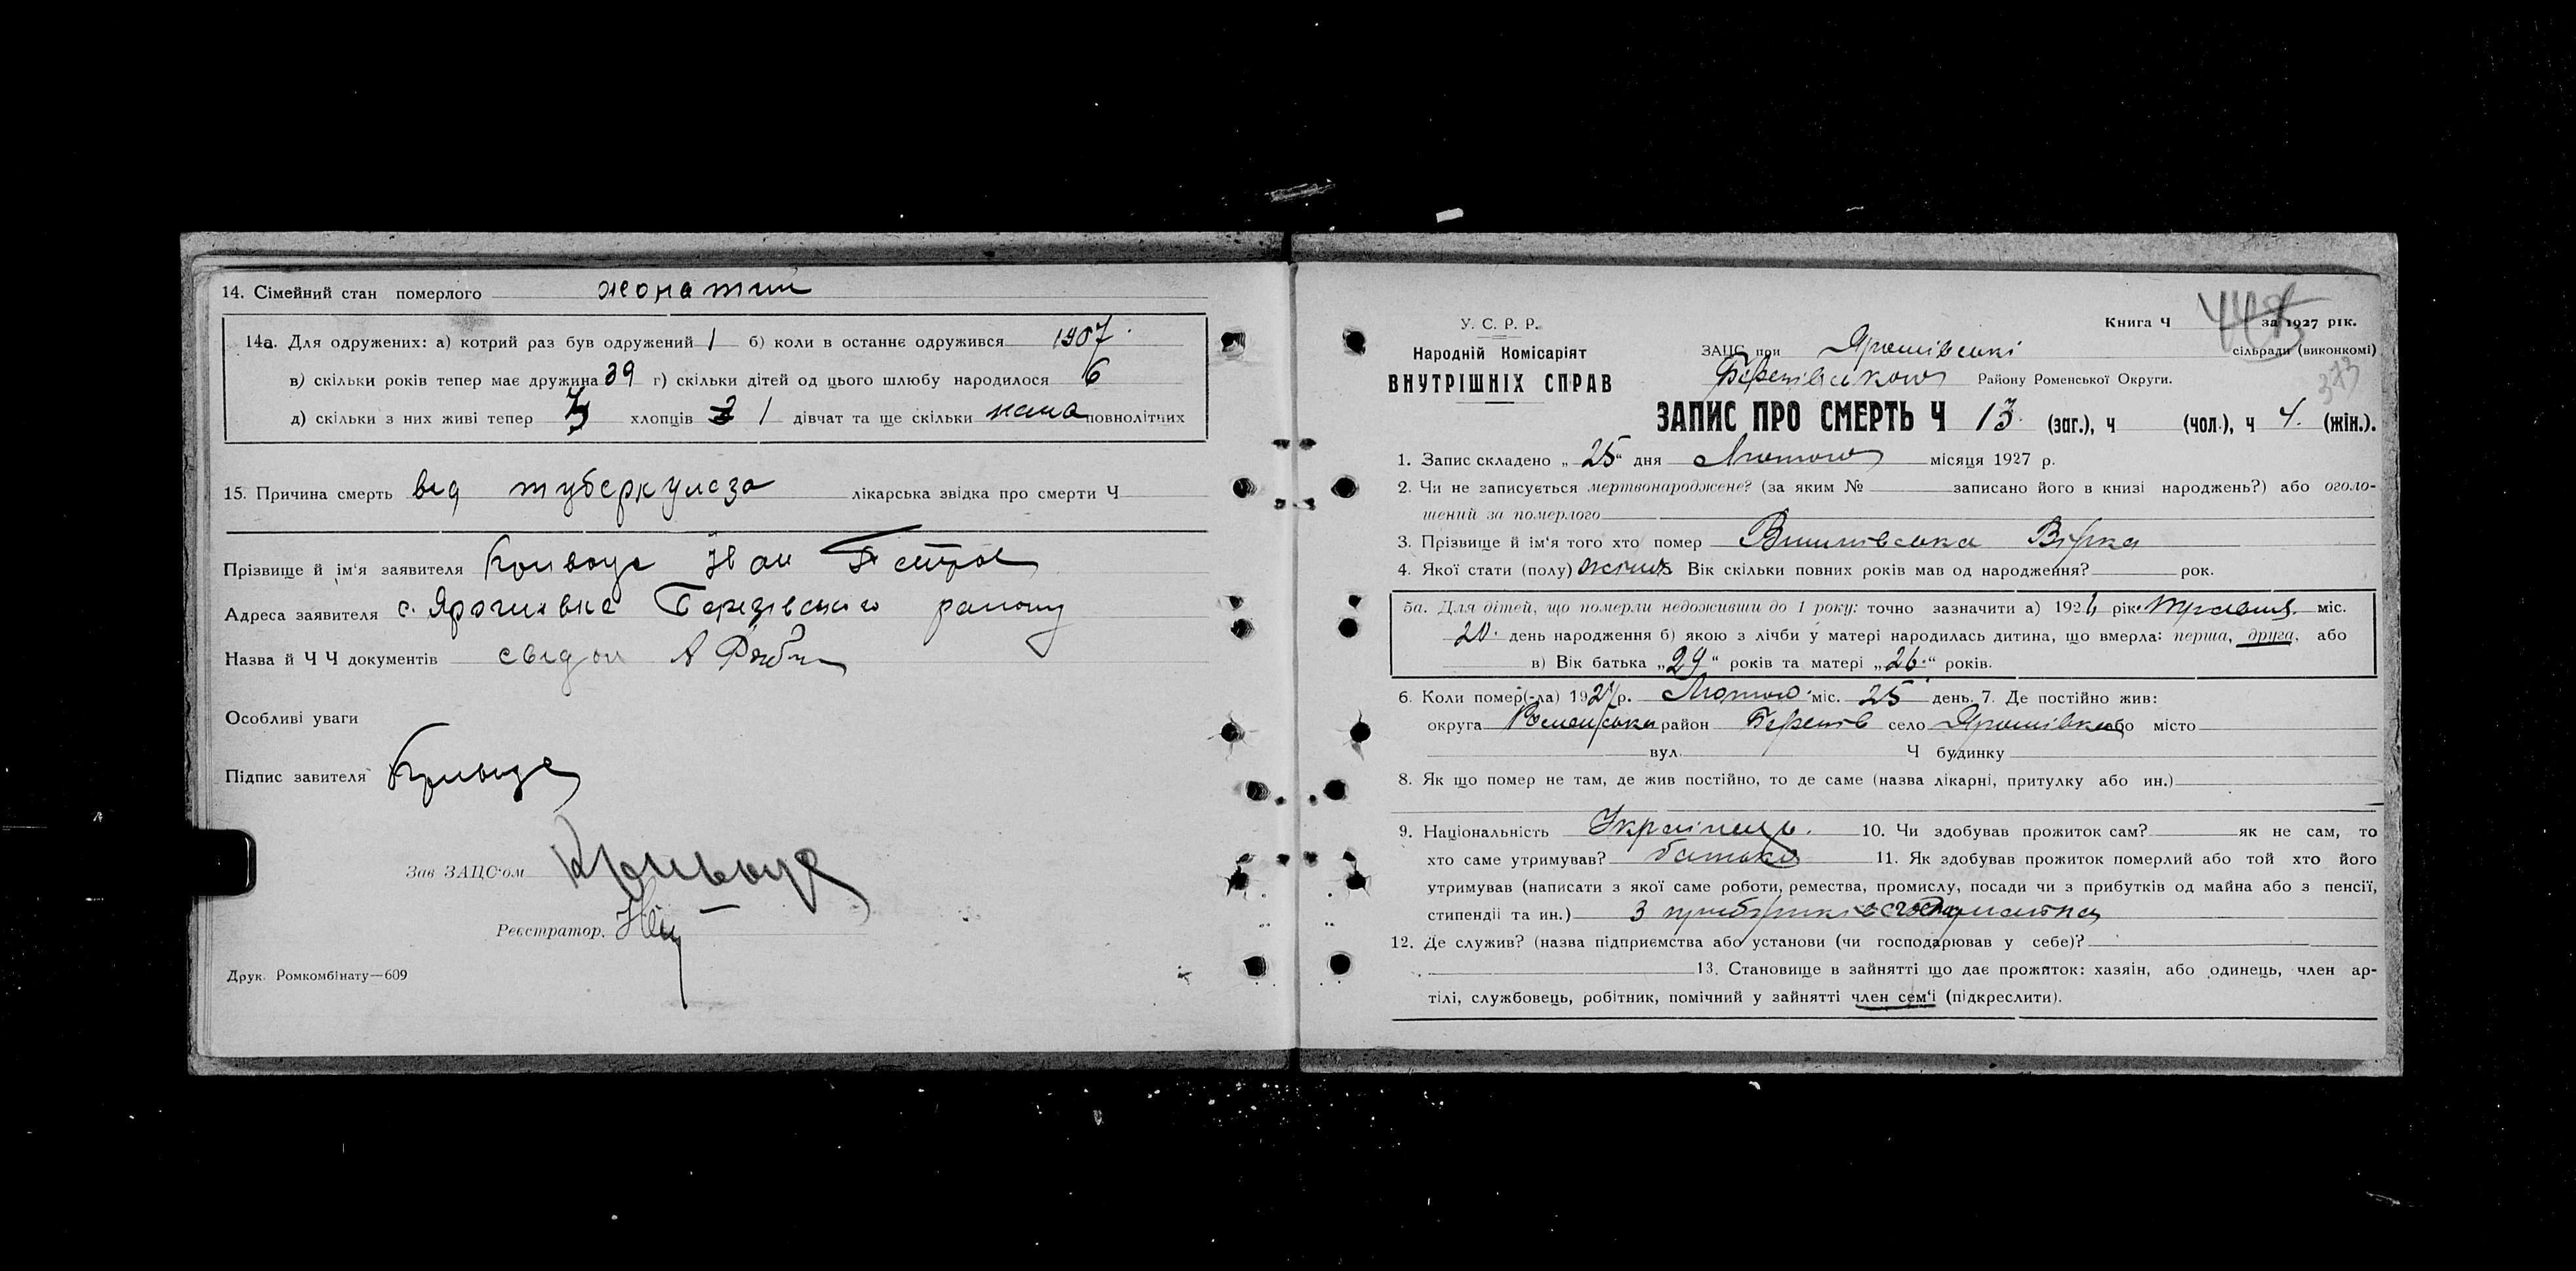 14. Сімейний стан померлого жонатий
14а. Для одружених: а) котрий раз був одружений 1 б) коли в останнє одружився 1907.
в) скільки років тепер має дружина 39 г) скільки дітей од цього шлюбу народилося 6
д) скільки з них живі тепер хлопців 1 дівчат та ще скільки нема повнолітних
15. Причина смерть від туберкулеза лікарська звідка про смерти Ч
Прізвище й ім'я заявителя Іван Петров
Адреса заявителя с. Ярошивка Березівського району
Назва й Ч Ч документів свідок А
Особливі уваги
Підпис завителя
Зав ЗАЦС'ом
Реєстратор.
Друк. Ромкомбінату—609
У. С. Р. Р.
Народній Комісаріят
ВНУТРІШНІХ СПРАВ
Книга Ч за 1927 рік.
373
ЗАЦС при Ярошівські сільради (виконкомі)
Березівського Району Роменської Округи.
ЗАПИС ПРО СМЕРТЬ Ч 13. (заг.), ч (чол.), ч 4. (жін.).
1. Запис складено „25“ дня Лютого місяця 1927 р.
2. Чи не записується мертвонароджене? (за яким № записано його в книзі народжень?) або оголо-
шений за померлого
3. Прізвище й ім'я того хто помер Вишнівська Вірка
4. Якої стати (полу) Вік скільки повних років мав од народження? рок.
5а. Для дітей, що померли недоживши до 1 року: точно зазначити а) 192 рік Травня міс.
20. день народження б) якою з лічби у матері народилась дитина, що вмерла: перша, друга, або
в) Вік батька „29“ років та матері „26.“ років.
6. Коли помер(-ла) 1927 р. Лютого міс. 25 день. 7. Де постійно жив:
округа Роменська район Березів село Ярошівка або місто
вул. Ч будинку
8. Як що помер не там, де жив постійно, то де саме (назва лікарні, притулку або ин.)
9. Національність Українець. 10. Чи здобував прожиток сам? як не сам, то
хто саме утримував? батько 11. Як здобував прожиток померлий або той хто його
утримував (написати з якої саме роботи, ремества, промислу, посади чи з прибутків од майна або з пенсії,
стипендії та ин.) З прибутків
12. Де служив? (назва підприємства або установи (чи господарював у себе)?
13. Становище в зайнятті що дає прожиток: хазяін, або одинець, член ар-
тілі, службовець, робітник, помічний у зайнятті член сем'і (підкреслити).